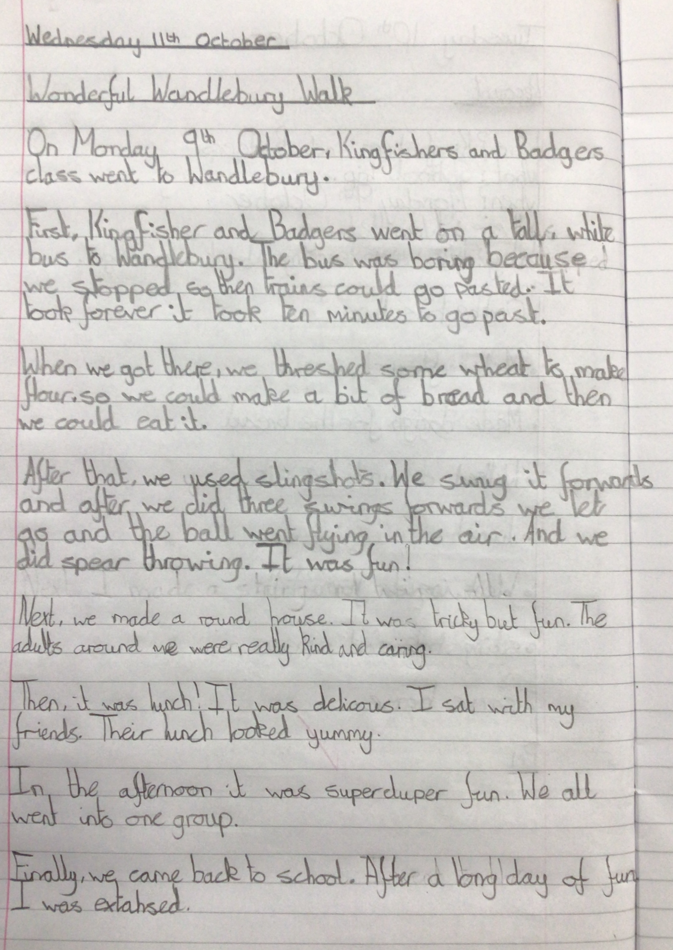 Wednesday 11th October
Wonderful Wandlebury Walk
On Monday 9th October, Kingfishers and Badgers
class went to Wandlebury.
First, Kingfisher and Badgers went on a tall, white
bus to Wandlebury. The bus was boring because
we stopped so then trains could go pasted. It
took forever it took ten minutes to go past.
When we got there, we threshed some wheat to make
flour.so we could make a bit of bread and then
we could eat it.
After that, we used slingshots. We sung it forwards
and after we did three swings forwards we let
go and the ball went flying in the air. And we
did spear throwing. It was fun!
Next, we made a round house. It was tricky but fun. The
adults around me were really kind and caring.
Then, it was lunch! It was delicous. I sat with my
friends. Their lunch looked yummy.
In the afternoon it was superduper fun. We all
went into one group.
Finally, we came back to school. After a long day of fun
I was extahsed.